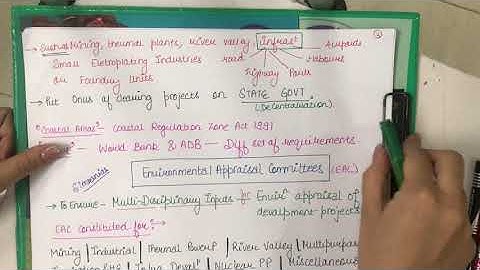 → Mining, thermal plants, River valley, Infrast — Airports
Small Eletroplating Industries road Harbours
or Foundry Units Highway Ports
→ Put Onus of clearing projects on STATE GOVT.
(Decentralisation).
* Coastal Areas - Coastal Regulation Zone Act 1991
- World Bank & ADB — Diff set of requirements
Environmental Appraisal Committees (EAC)
→ To Ensure - Multi-Disciplinary Inputs for appraisal of
development projects
EAC constituted for:→
Mining | Industrial | Thermal Power | River Valley | Multipurpose
Nuclear PP | Miscellaneous